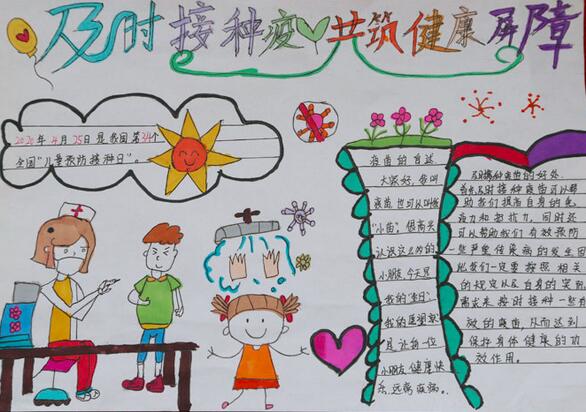 及时接种疫苗共筑健康屏障
2020年4月25日是我国第34个
全国"儿童预防接种日"。
疫苗的自述
大家好，我叫
疫苗，也可以叫我
"小苗"，很高兴
认识这么多的
小朋友，今天是
我的生日，
我的愿望就
是让每一位
小朋友健康快
乐，远离疾病。
及时接种疫苗的好处
首先及时接种疫苗可以帮
助我们提高自身的免
疫力和抵抗力，同时还
可以帮助我们有效预防
一些严重传染病的发生因
此我们一定要按照相关
的规定以及自身的实际
需求来按时接种一些有
效的疫苗，从而达到
保持身体健康的功
效作用。